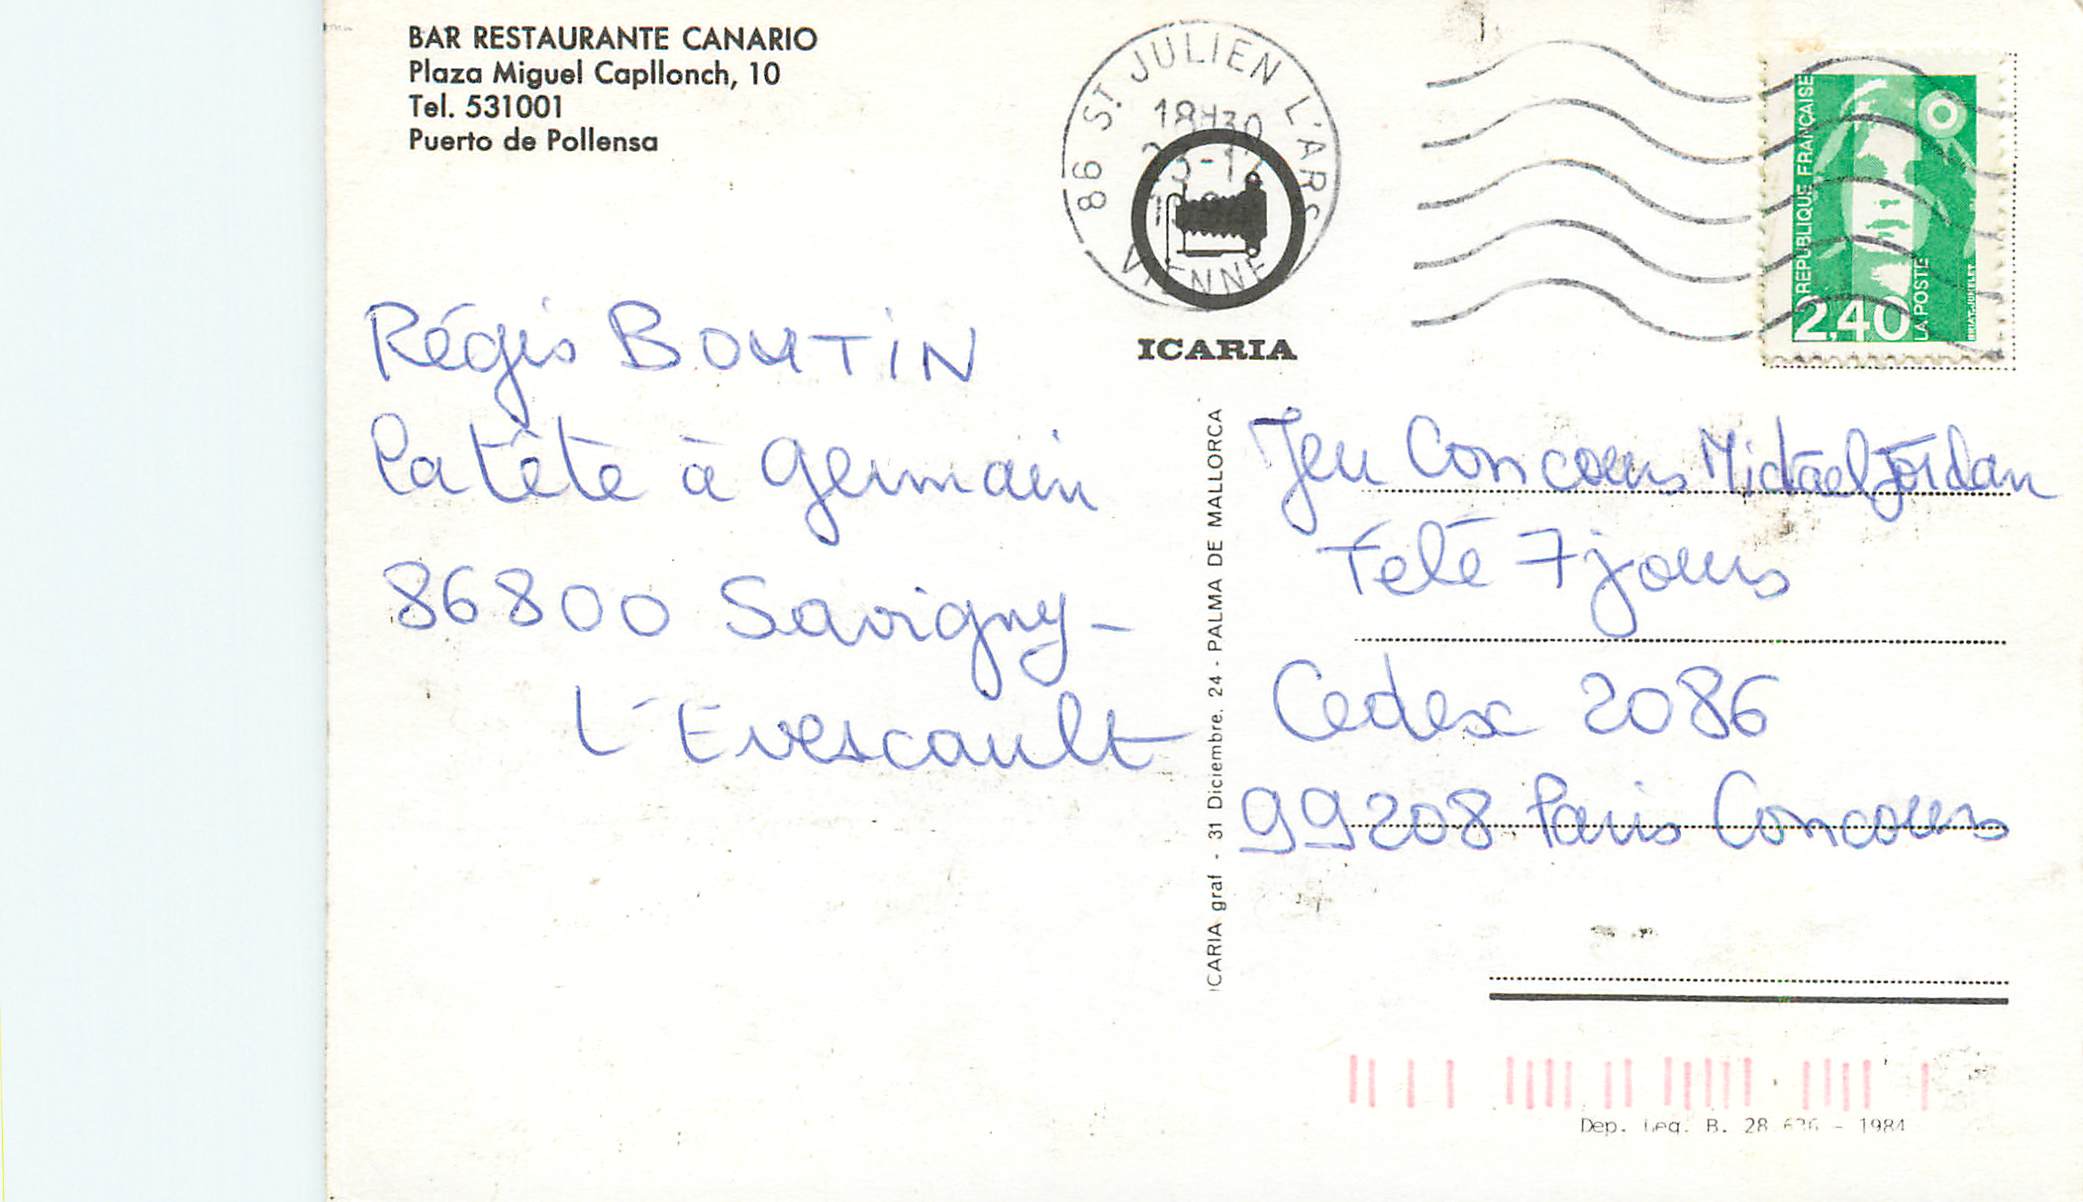 BAR RESTAURANTE CANARIO
Plaza Miguel Capllonch, 10
Tel. 531001
Puerto de Pollensa
86 ST. JULIEN L'ARS
18H30
VIENNE
ICARIA
REPUBLIQUE FRANÇAISE
LA POSTE
2,40
Régis BOUTIN
la tête à Germain
86800 Savigny-
L'Evescault
ICARIA graf - 31 Diciembre, 24 - PALMA DE MALLORCA
Jeu Concours Mickael Jordan
Télé 7 jours
Cedex 2086
99208 Paris Concours
Dep. Leg. B. 28 - 1984